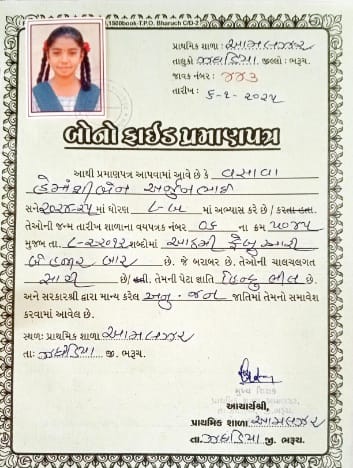 1500book-T.P.O. Bharuch C/D-2
પ્રાથમિક શાળા : આમલઝર
તાલુકો ઝઘડિયા જીલ્લો : ભરૂચ.
જાવક નંબર : ૬૬૩
તારીખ : ૬-૧-૨૦૨૫
બોનોફાઈડ પ્રમાણપત્ર
આથી પ્રમાણપત્ર આપવામાં આવે છે કે વસાવા
હેમાંશીબેન અર્જુનભાઈ
સને ૨૦૨૪-૨૫ માં ધોરણ ૮-બ માં અભ્યાસ કરે છે / કરતા હતા.
તેઓની જન્મ તારીખ શાળાના વયપત્રક નંબર ૦૬ ના ક્રમ ૫૦૪૫
મુજબ તા. ૮-૨-૨૦૧૨ શબ્દોમાં આઠમી ફેબ્રુઆરી
બે હજાર બાર છે. જે બરાબર છે. તેઓની ચાલચલગત
સારી છે/હતી. તેમની પેટા જ્ઞાતિ હિન્દુ ભીલ છે.
અને સરકારશ્રી દ્વારા માન્ય કરેલ અનુ. જન જાતિમાં તેમનો સમાવેશ
કરવામાં આવેલ છે.
સ્થળ: પ્રાથમિક શાળા આમલઝર
તા: ઝઘડિયા જી. ભરૂચ.
મુખ્ય શિક્ષક
આચાર્યશ્રી,
પ્રાથમિક શાળા આમલઝર
તા. ઝઘડિયા જી. ભરૂચ.